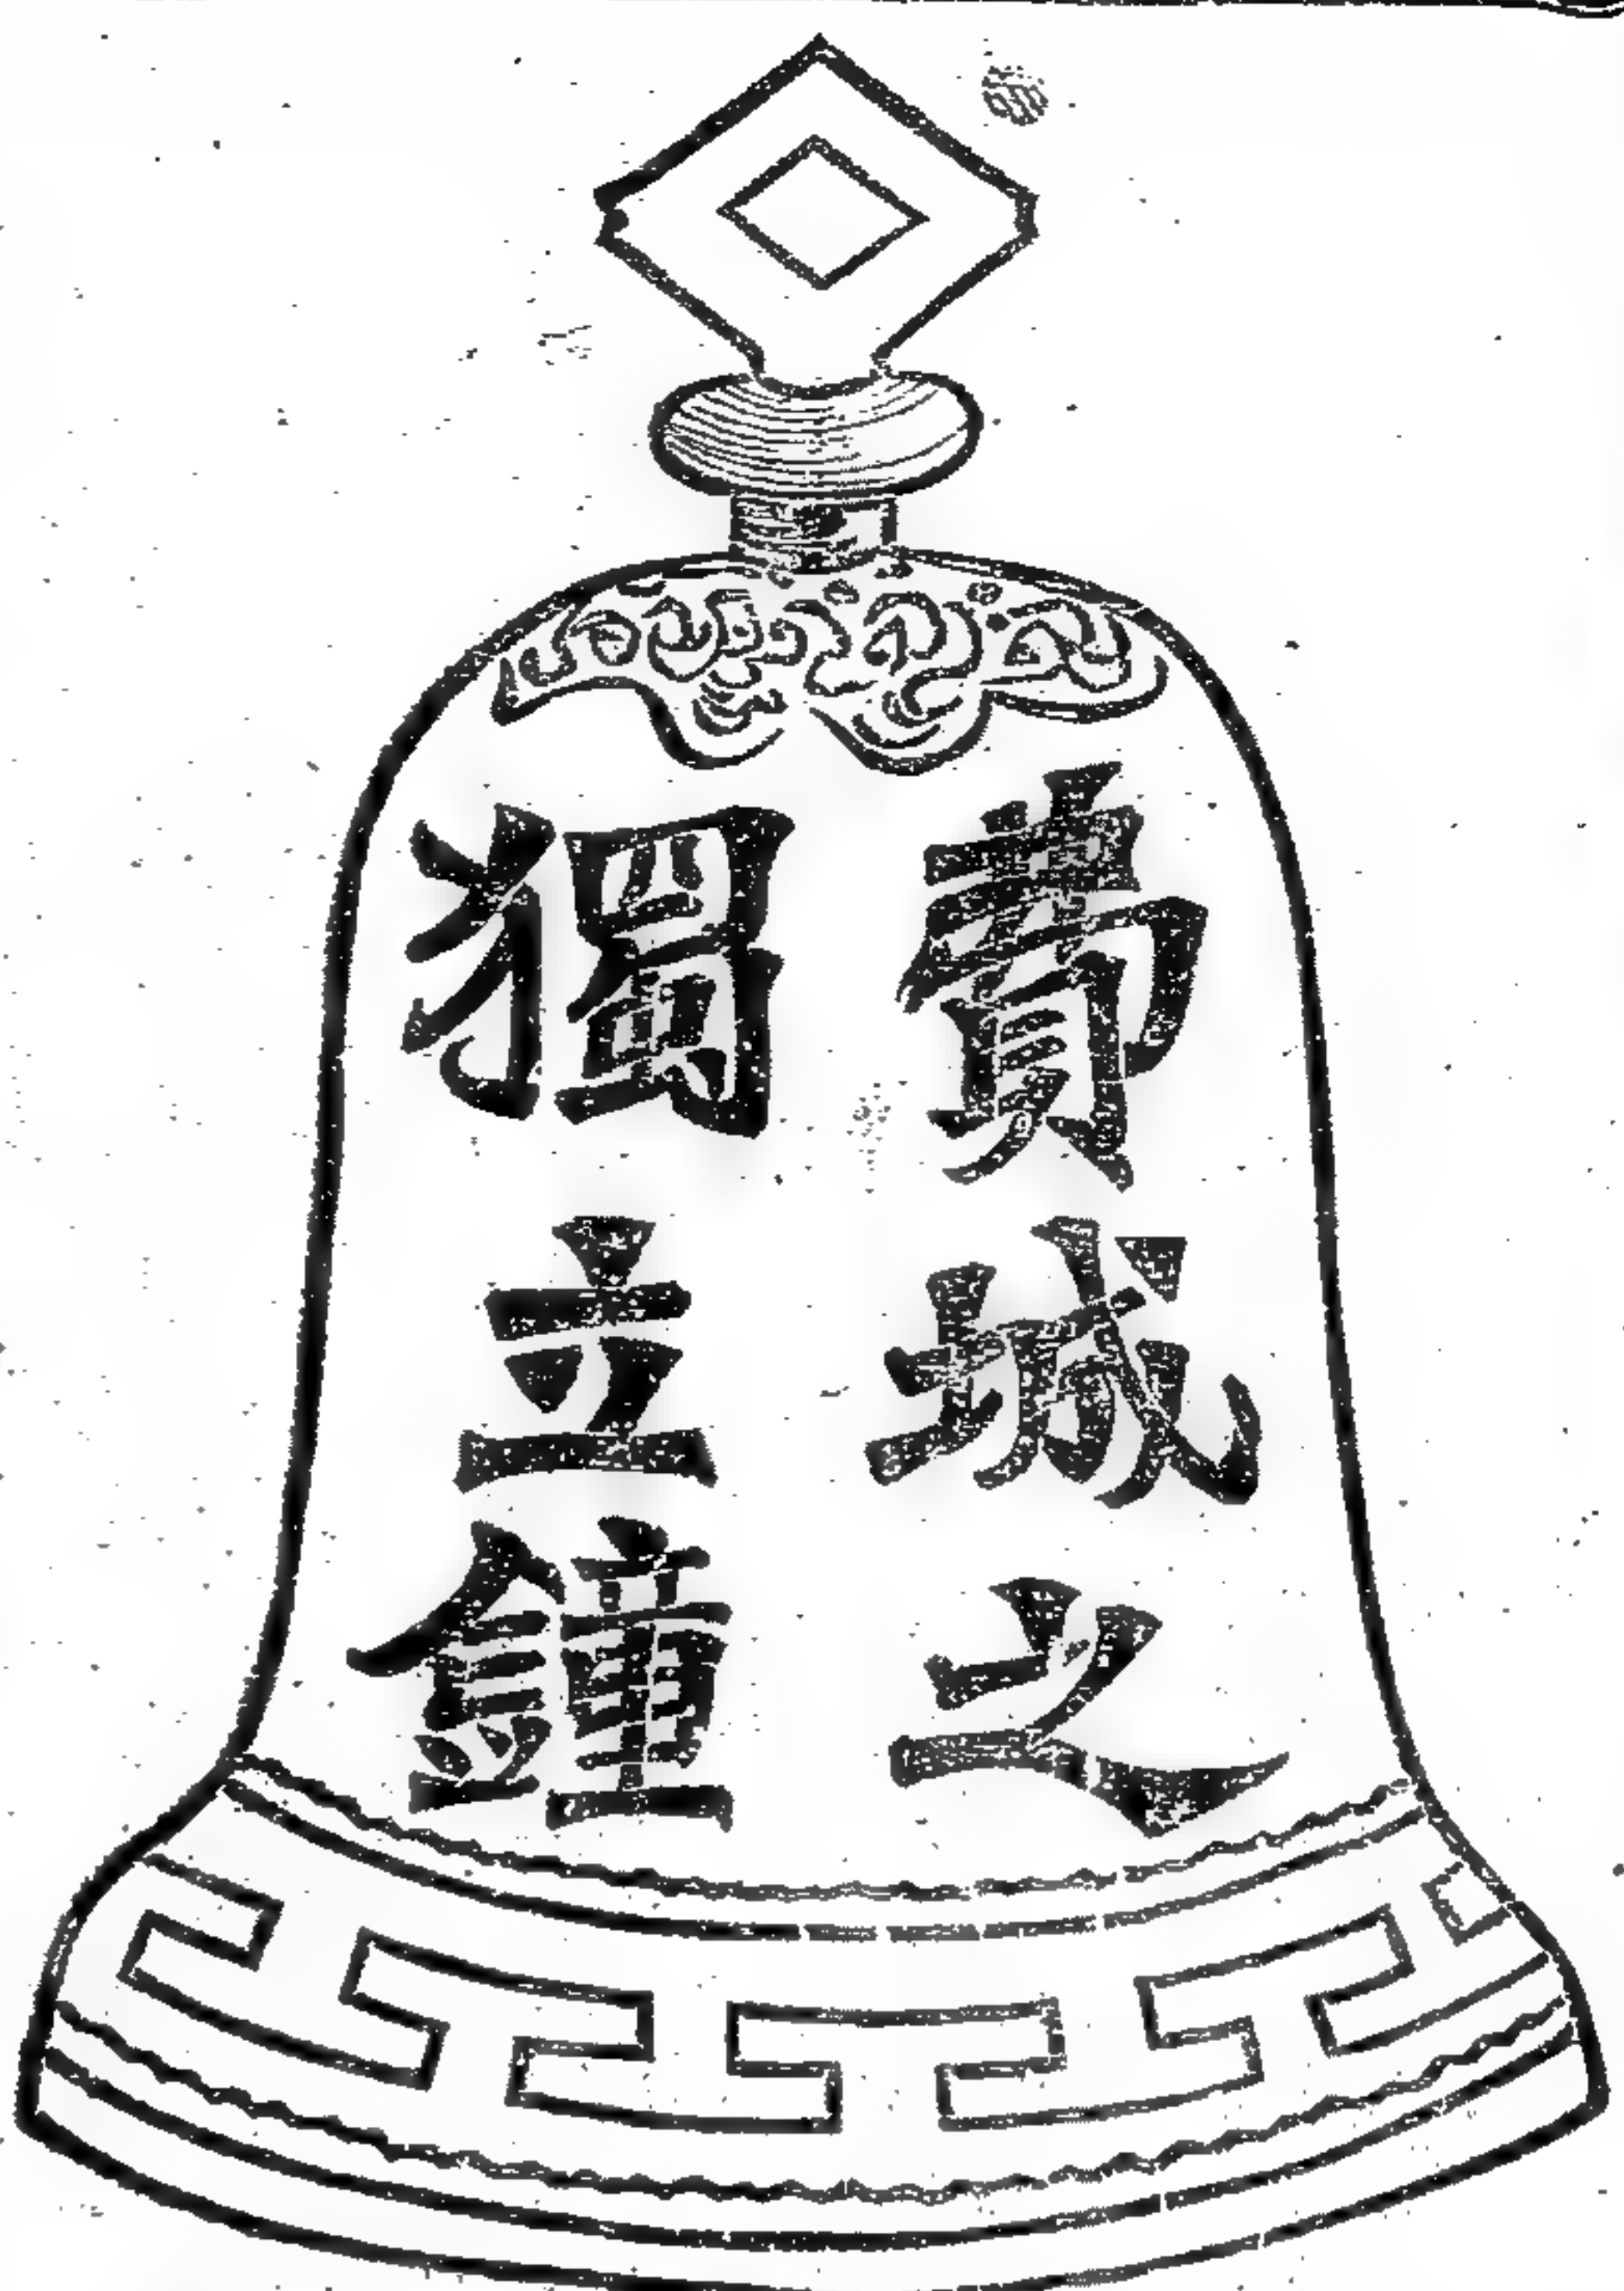 費城之
獨立鐘